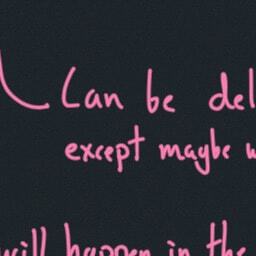 Can be del
except maybe w
will happen in the